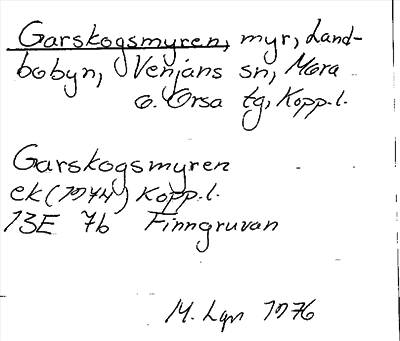 Garskogsmyren, myr, Land-
bobyn, Venjans sn, Mora
o. Orsa tg, Kopp.l.
Garskogsmyren
ek (1974) Kopp.l.
13E 7b Finngruvan
M. Lgn 1976